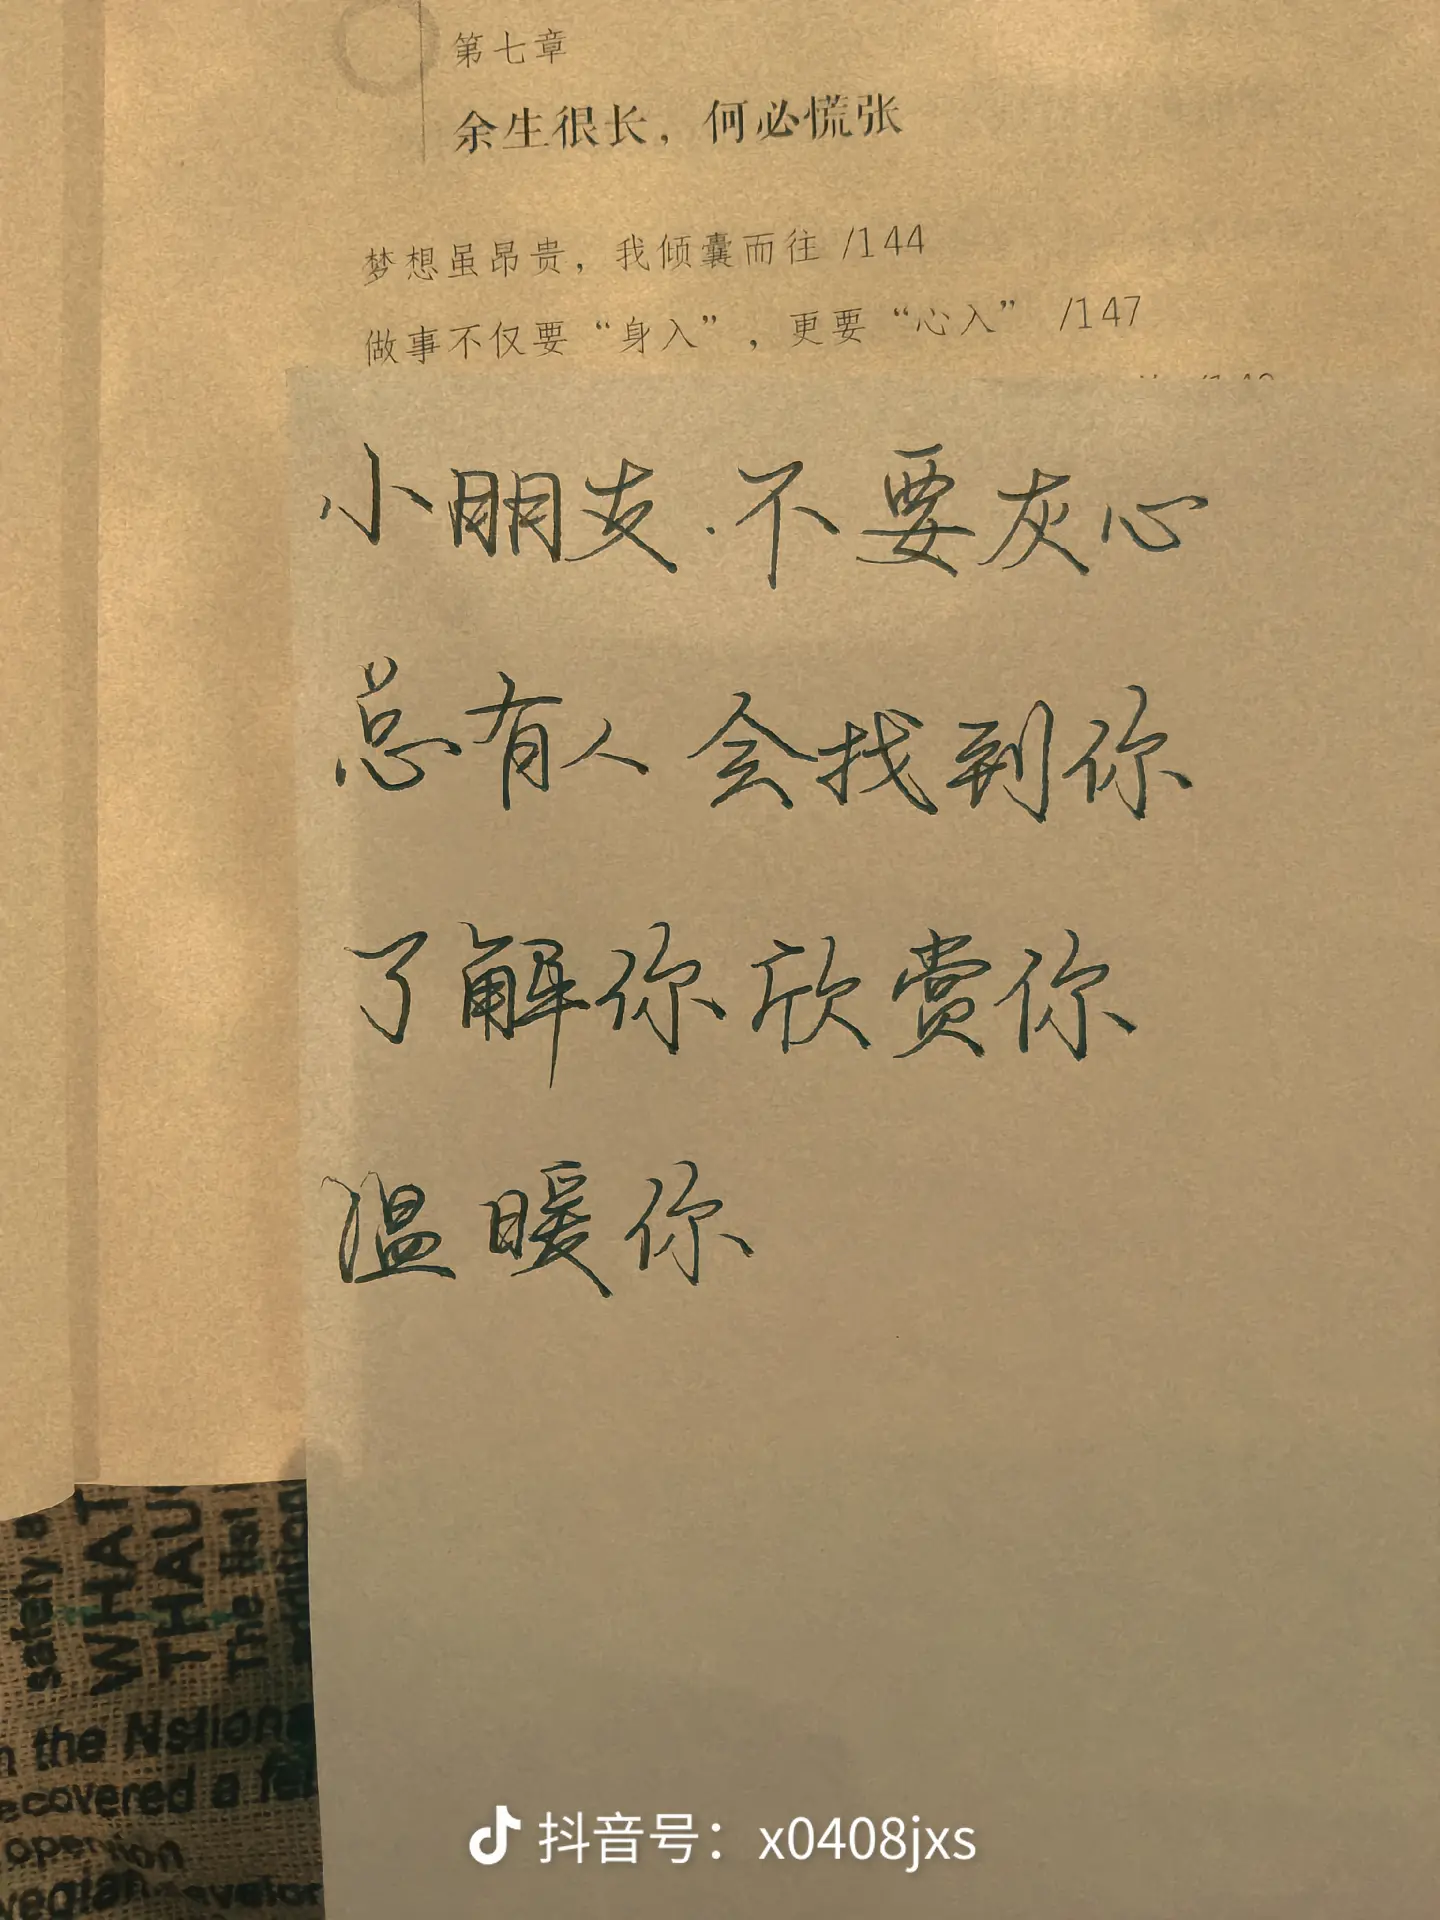 第七章
余生很长，何必慌张
梦想虽昂贵，我倾囊而往 /144
做事不仅要“身入”，更要“心入” /147
小朋友.不要灰心
总有人会找到你
了解你欣赏你
温暖你
safety a
WHAT
THAU
The
n the Nstiona
ecovered a
抖音号：x0408jxs